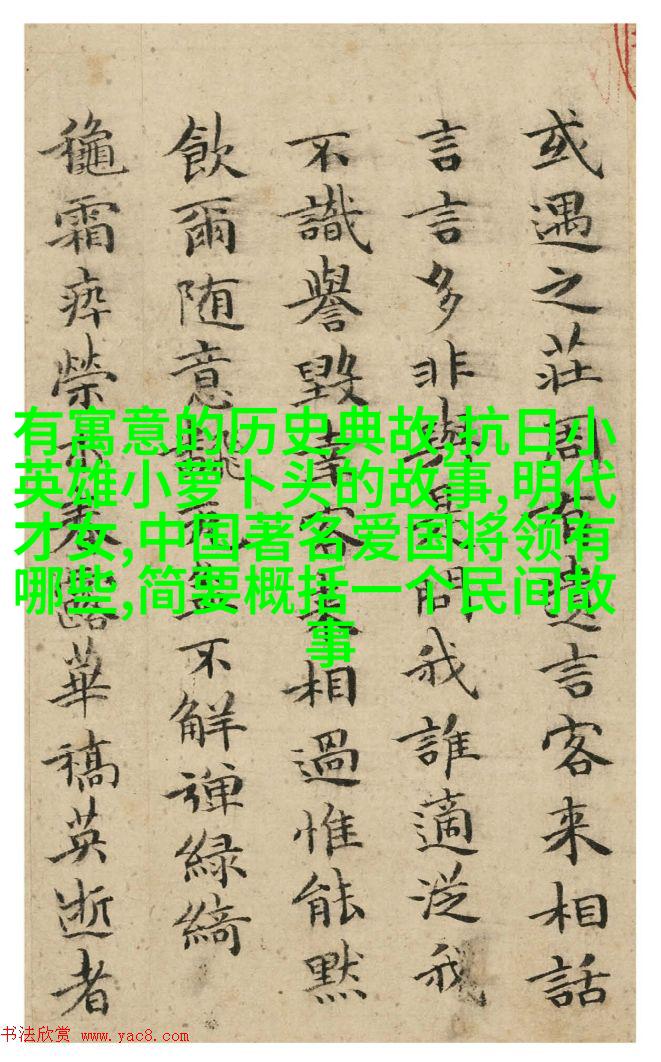 或遇之莊周言客来相話
言言多非問我誰適從我
不識譽毀幸客相過惟能默
飲爾随意不解彈緑綺
龝霜瘁榮春露華稿英逝者
有寓意的历史典故,抗日小
英雄小萝卜头的故事,明代
才女,中国著名爱国将领有
哪些,简要概括一个民间故
事
书法欣赏 www.yac8.com